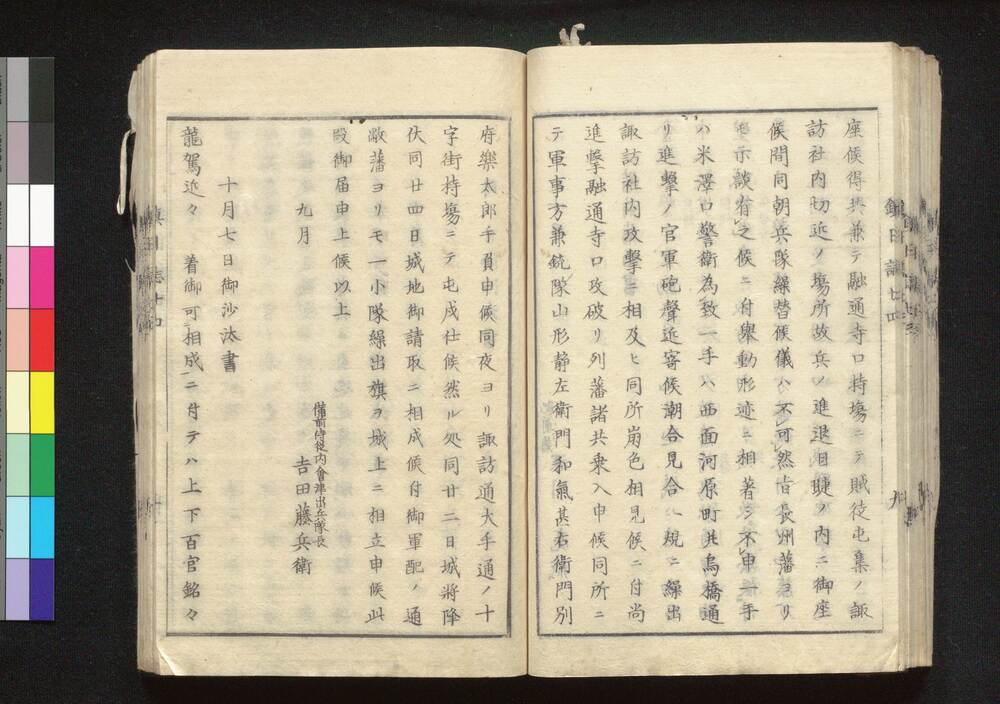 座候得共兼テ融通寺口持場ニテ賊徒屯集ノ諏
訪社内切近ノ場所故兵ノ進退目睫ノ内ニ御座
候間同朝兵隊繰替候儀ハ不可然旨長州藩ヨリ
モ示談有之候ニ付挙動形迹ニ相著ラ不申一手
ハ米澤口警衛為致一手ハ西面河原町並烏橋通
リ進撃ノ官軍砲聲近寄候潮合見合ハ規ニ繰出
諏訪社内攻撃ニ相及ヒ同所崩色相見候ニ付尚
進撃融通寺口攻破リ列藩諸共乗入申候同所ニ
テ軍事方兼銃隊山形静左衛門和氣甚右衛門別
府樂太郎手負申候同夜ヨリ諏訪通大手通ノ十
字街持場ニテ屯戍仕候然ル処同廿二日城將降
伏同廿四日城地御請取ニ相成候付御軍配ノ通
敝藩ヨリモ一小隊繰出旗ヲ城上ニ相立申候此
段御届申上候以上
九月
備前侍從内會津出兵隊長
吉田藤兵衛
十月七日御沙汰書
龍駕近々 着御可相成ニ付テハ上下百官銘々
鎮日誌七四